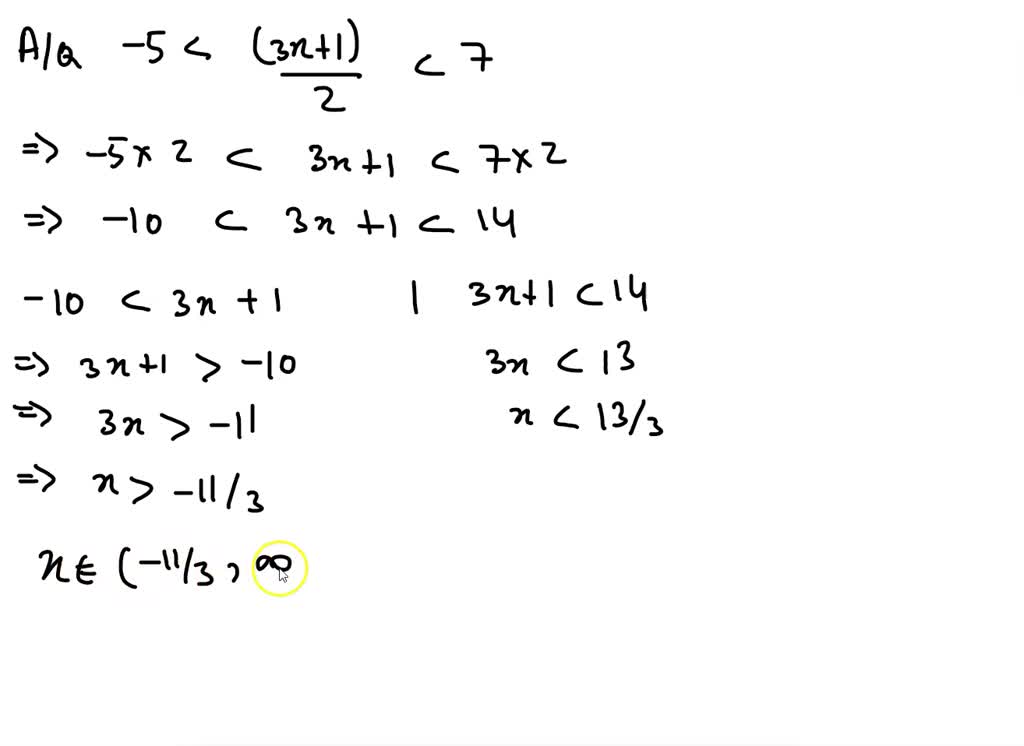 A/Q -5 < (3x+1)/2 < 7
=> -5 × 2 < 3x+1 < 7×2
=> -10 < 3x +1 < 14
-10 < 3x + 1 | 3x+1 < 14
=> 3x+1 > -10 3x < 13
=> 3x > -11 x < 13/3
=> x > -11/3
x ∈ (-11/3 , ∞